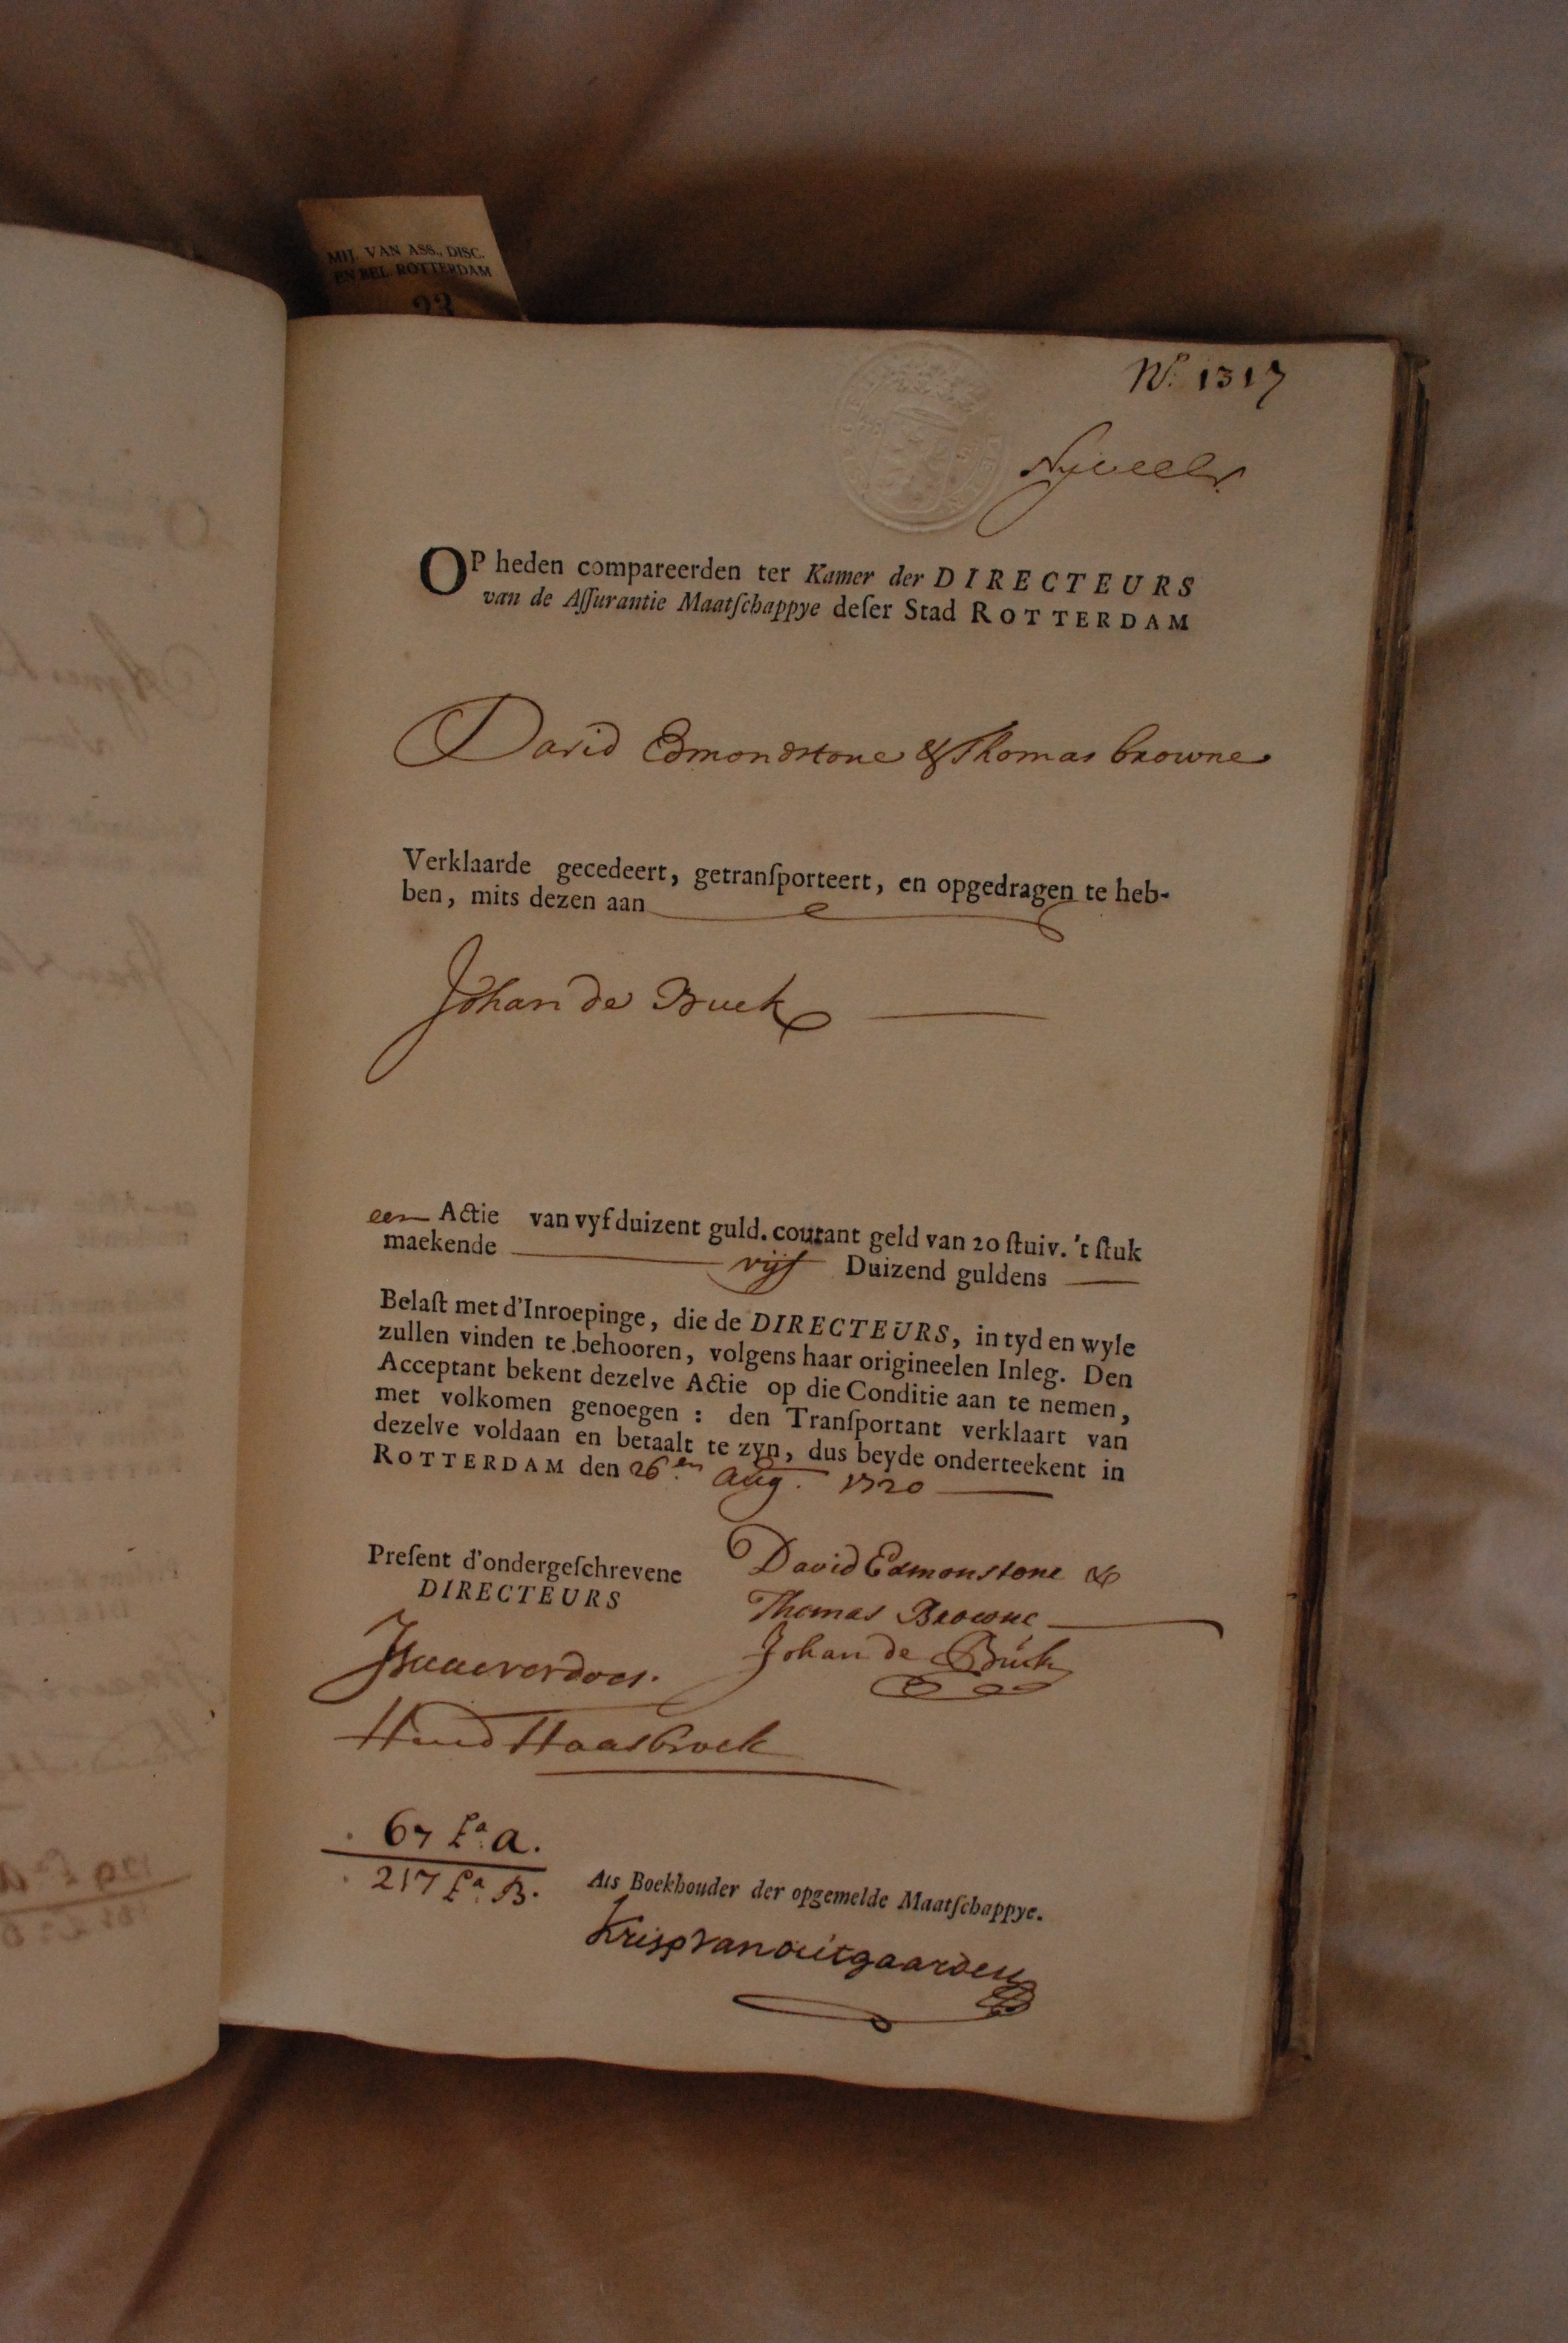 MIJ. VAN ASS., DISC.
EN BEL. ROTTERDAM
23
No. 1317
OP heden compareerden ter Kamer der DIRECTEURS
van de Aſſurantie Maatſchappye deſer Stad ROTTERDAM
David Edmondstone & Thomas browne
Verklaarde gecedeert, getranſporteert, en opgedragen te heb-
ben, mits dezen aan
Johan de Buck
een Actie van vyfduizent guld. courant geld van 20 ſtuiv. 't ſtuk
maekende vijf Duizend guldens
Belaſt met d'Inroepinge, die de DIRECTEURS, in tyd en wyle
zullen vinden te behooren, volgens haar origineelen Inleg. Den
Acceptant bekent dezelve Actie op die Conditie aan te nemen,
met volkomen genoegen : den Tranſportant verklaart van
dezelve voldaan en betaalt te zyn, dus beyde onderteekent in
ROTTERDAM den 26en aug. 1720
Preſent d'ondergeſchrevene
DIRECTEURS
David Edmonstone &
Thomas Browne
Johan de Búck
Haasbroek
67 La. A.
217 La. B.
Als Boekhouder der opgemelde Maatſchappye.
Krisp van outgaarden